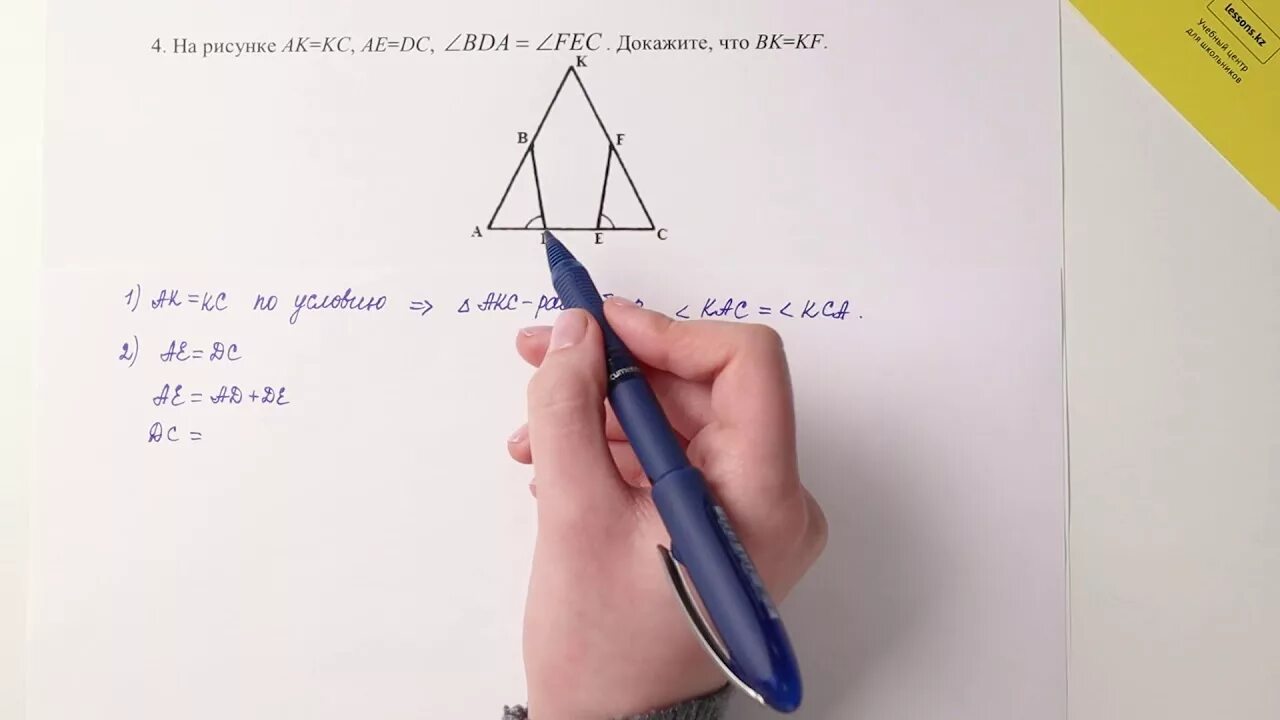 4. На рисунке AK=KC, AE=DC, ∠BDA = ∠FEC . Докажите, что BK=KF.
K
B F
A E C
1) AK = KC по условию => △ AKC - < KAC = < KCA .
2) AE = DC
AE = AD + DE
DC =
lessons.kz
Учебный центр
для школьников